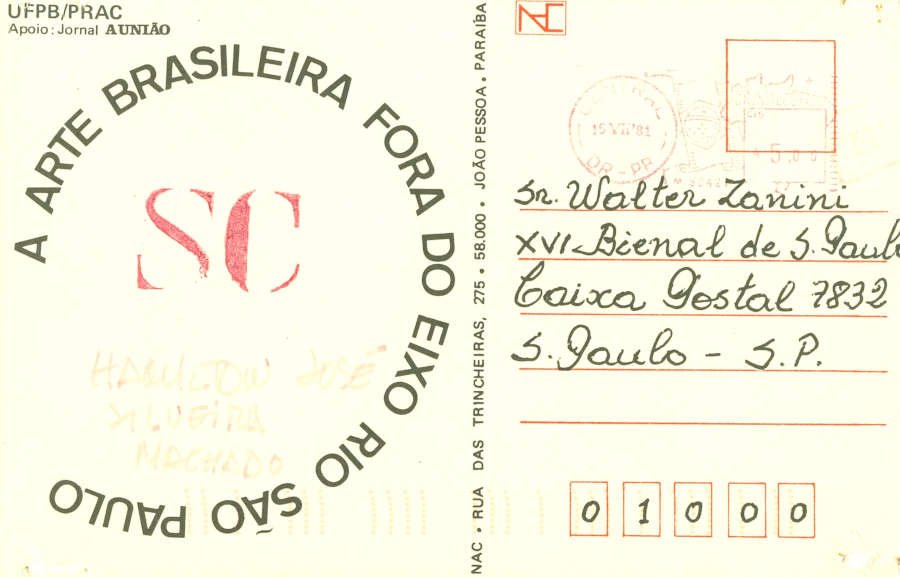 UFPB/PRAC
Apoio: Jornal A UNIÃO
A ARTE BRASILEIRA FORA DO EIXO RIO SÃO PAULO
SC
HAMILTON JOSÉ
SILVEIRA
MACHADO
NAC • RUA DAS TRINCHEIRAS, 275 • 58.000 • JOÃO PESSOA • PARAÍBA
15 VII '81
DR-PR
Sr. Walter Zanini
XVI Bienal de S. Paulo
Caixa Postal 7832
S. Paulo - S.P.
0 1 0 0 0